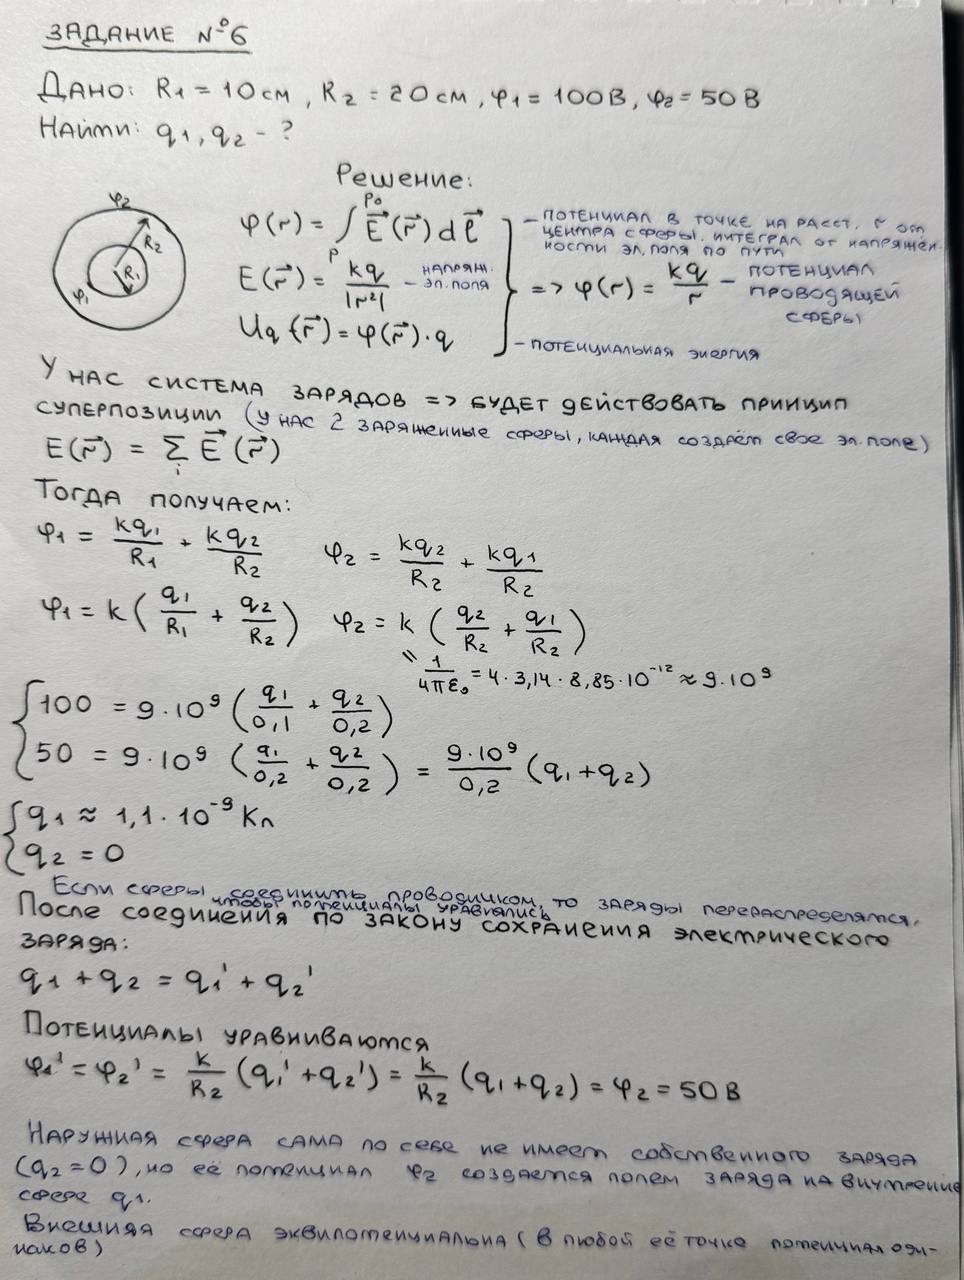 ЗАДАНИЕ №6
ДАНО: R1 = 10 см, R2 = 20 см, φ1 = 100 В, φ2 = 50 В
НАЙТИ: q1, q2 - ?
Решение:
φ2
R2
R1
φ1
φ(r) = ∫_P^{P0} E⃗(r⃗) dl⃗ - ПОТЕНЦИАЛ В ТОЧКЕ НА РАССТ. r ОТ
ЦЕНТРА СФЕРЫ. ИНТЕГРАЛ ОТ НАПРЯЖЕН-
НОСТИ ЭЛ. ПОЛЯ ПО ПУТИ
E(r⃗) = kq/|r²| - НАПРЯЖ. ЭЛ. ПОЛЯ => φ(r) = kq/r - ПОТЕНЦИАЛ
ПРОВОДЯЩЕЙ
СФЕРЫ
Uq(r⃗) = φ(r⃗)·q - ПОТЕНЦИАЛЬНАЯ ЭНЕРГИЯ
У НАС СИСТЕМА ЗАРЯДОВ => БУДЕТ ДЕЙСТВОВАТЬ ПРИНЦИП
СУПЕРПОЗИЦИИ (У НАС 2 ЗАРЯЖЕННЫЕ СФЕРЫ, КАЖДАЯ СОЗДАЁТ СВОЕ ЭЛ. ПОЛЕ)
E(r⃗) = Σ_i E⃗(r⃗)
ТОГДА ПОЛУЧАЕМ:
φ1 = kq1/R1 + kq2/R2 φ2 = kq2/R2 + kq1/R2
φ1 = k(q1/R1 + q2/R2) φ2 = k(q2/R2 + q1/R2)
" 1/4πε0 = 4·3,14·8,85·10^-12 ≈ 9·10^9
{ 100 = 9·10^9 (q1/0,1 + q2/0,2)
50 = 9·10^9 (q1/0,2 + q2/0,2) = 9·10^9/0,2 (q1+q2)
{ q1 ≈ 1,1·10^-9 Кл
q2 = 0
ЕСЛИ СФЕРЫ СОЕДИНИТЬ ПРОВОДНИКОМ, ТО ЗАРЯДЫ ПЕРЕРАСПРЕДЕЛЯТСЯ,
ЧТОБЫ ПОТЕНЦИАЛЫ УРАВНЯЛИСЬ
ПОСЛЕ СОЕДИНЕНИЯ ПО ЗАКОНУ СОХРАНЕНИЯ ЭЛЕКТРИЧЕСКОГО
ЗАРЯДА:
q1 + q2 = q1' + q2'
ПОТЕНЦИАЛЫ УРАВНИВАЮТСЯ
φ1' = φ2' = k/R2 (q1' + q2') = k/R2 (q1 + q2) = φ2 = 50 В
НАРУЖНАЯ СФЕРА САМА ПО СЕБЕ НЕ ИМЕЕТ СОБСТВЕННОГО ЗАРЯДА
(q2 = 0), НО ЕЁ ПОТЕНЦИАЛ φ2 СОЗДАЕТСЯ ПОЛЕМ ЗАРЯДА НА ВНУТРЕННЕ
СФЕРЕ q1.
ВНЕШНЯЯ СФЕРА ЭКВИПОТЕНЦИАЛЬНА (В ЛЮБОЙ ЕЁ ТОЧКЕ ПОТЕНЦИАЛ ОДИ-
НАКОВ)